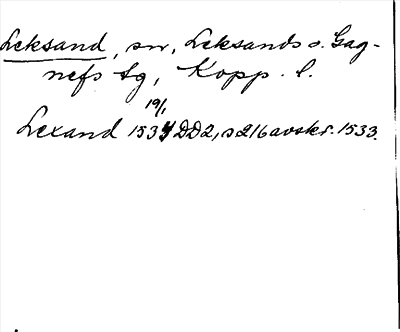 Leksand, sn, Leksands o. Gag-
nefs tg, Kopp. l.
19/1
Lexand 1534 DD2, s 216 avskr. 1533.